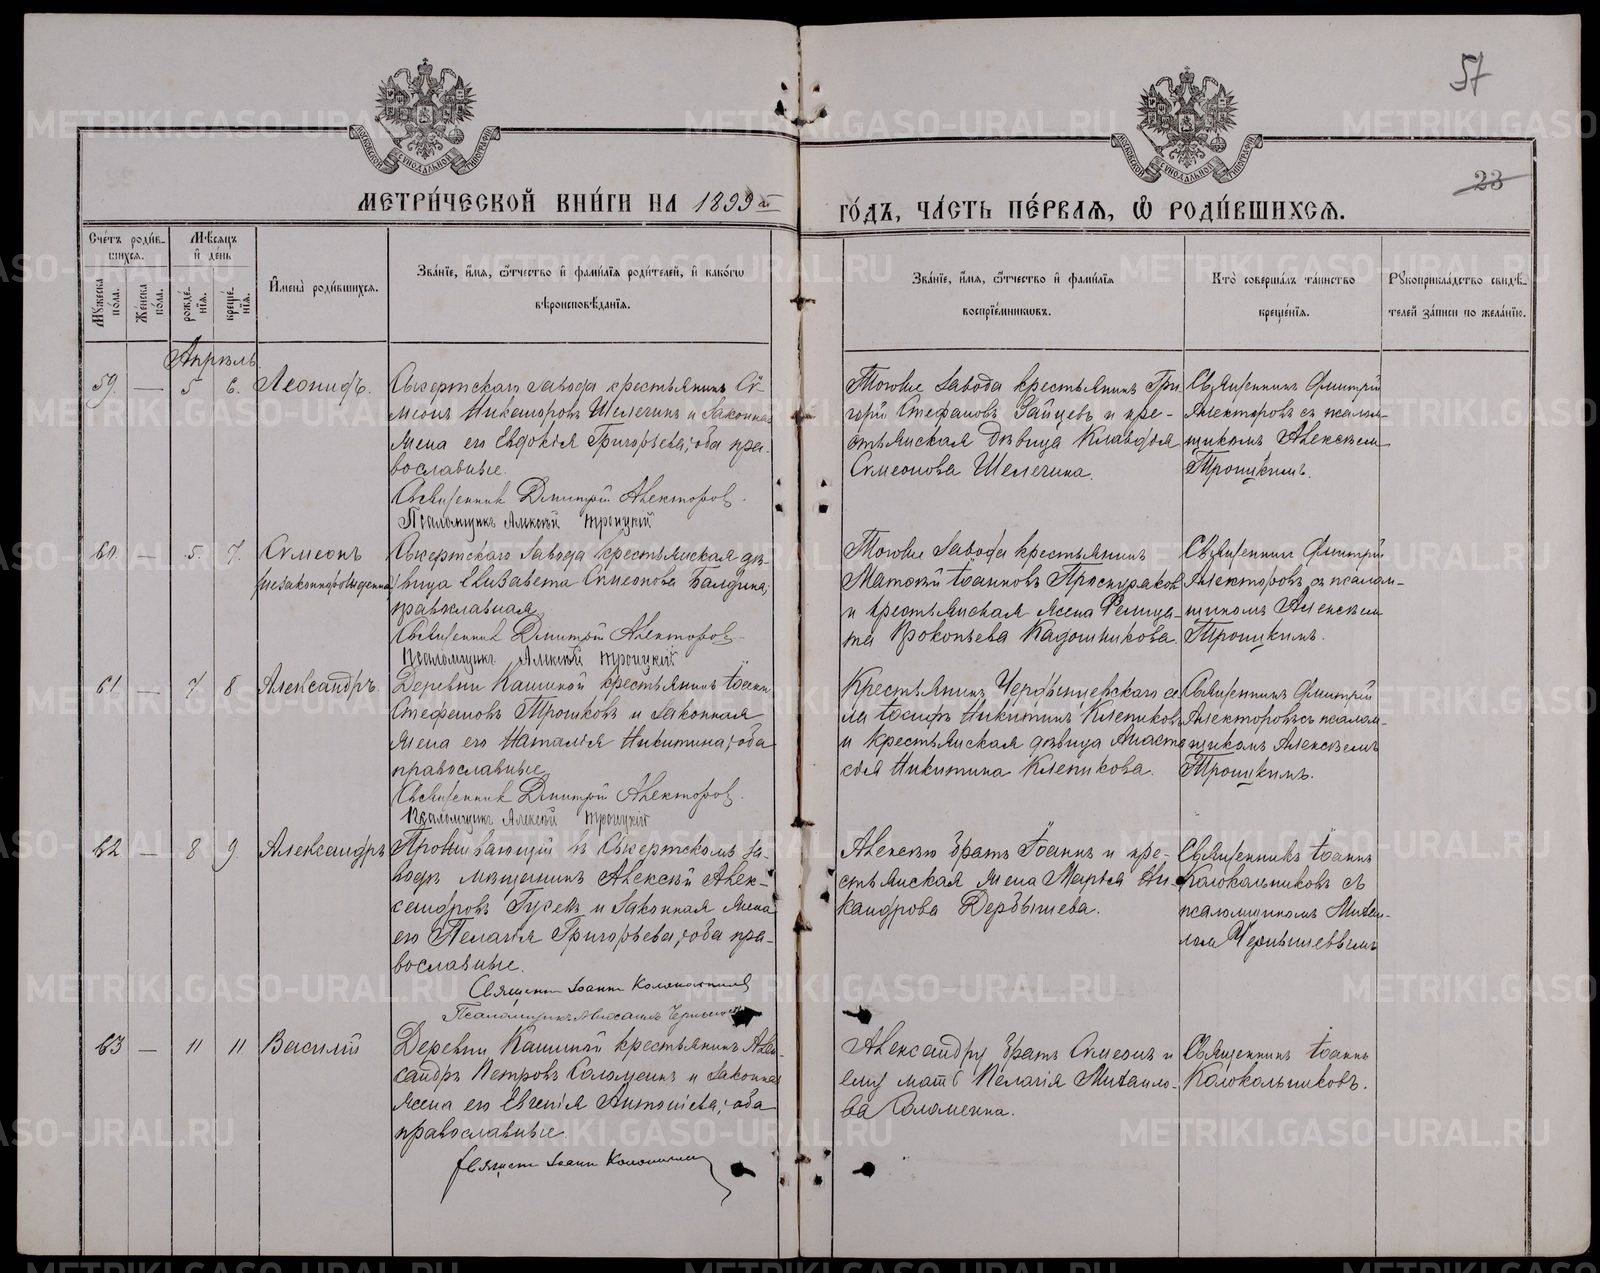 57
23
МОСКОВСКОЙ СѴНОДАЛЬНОЙ ТИПОГРАФІИ
МОСКОВСКОЙ СѴНОДАЛЬНОЙ ТИПОГРАФІИ
МЕТРИ́ЧЕСКОЙ КНИ́ГИ НА 1899й
ГО́ДЪ, ЧА́СТЬ ПЕ́РВАЯ, Ѡ РОДИ́ВШИХСЯ.
Сче́тъ роди́в-
шихся.
Мужеска по́ла.
Же́нска по́ла.
Мѣсяцъ и҆ де́нь
рожде́-нїя.
креще́-нїя.
И҆мена̀ роди́вшихся.
Зва́нїе, и҆́мя, ѻ҆́тчество и҆ фами́лїя роди́телей, и҆ како́гѡ
вѣроисповѣ́данїя.
Зва́нїе, и҆́мя, ѻ҆́тчество и҆ фами́лїя
воспрїе́мникѡвъ.
Кто̀ соверша́лъ та́инство
креще́нїя.
Рꙋкоприкла́дство свидѣ́-
телей за́писи по жела́нїю.
Апрѣль
59. — 5 6. Леонидъ.
Сысертскаго завода крестьянинъ Сѵ-
меонъ Никаноровъ Шелегинъ и законная
жена его Евдокія Григорьева; оба пра-
вославные.
Священник Дмитрій Авекторов.
Псаломщикъ Алексѣй Троицкій
Тогоже завода крестьянинъ Гри-
горій Стефановъ Зайцевъ и кре-
стьянская дѣвица Клавдія
Симеонова Шелегина.
Священникъ Димитрій
Алекторовъ съ псалом-
щикомъ Алексѣем
Троицкимъ.
60. — 5. 7. Симеонъ
(незаконнорожденный)
Сысертскаго завода крестьянская дѣ-
вица Елизавета Симеонова Балдина,
православная.
Священник Дмитрій Авекторов
Псаломщикъ Алексѣй Троицкій
Тогоже завода крестьянинъ
Матѳей Іоанновъ Проскуряков
и крестьянская жена Фелица-
та Прокопьева Кадошникова.
Священникъ Димитрій
Алекторовъ съ псалом-
щикомъ Алексѣем
Троицкимъ.
61 — 7 8. Александръ.
Деревни Кашиной крестьянинъ Іоаннъ
Стефановъ Трошковъ и законная
жена его Наталія Никитина; оба
православные.
Священник Дмитрій Авекторов.
Псаломщикъ Алексѣй Троицкій
Крестьянинъ се-
ла Іосифъ Никитинъ Клепиковъ
и крестьянская дѣвица Анаста-
сія Никитина Клепикова.
Священникъ Димитрій
Алекторовъ съ псалом-
щикомъ Алексѣемъ
Троицкимъ.
62 — 8 9. Александръ
Проживающій въ Сысертскомъ за-
водѣ мѣщанинъ Алексѣй Алек-
сандровъ Гусевъ и законная жена
его Пелагія Григорьева; оба пра-
вославные.
Священ. Іоаннъ Колокольников
Псаломщикъ Михаилъ
Алексѣю братъ Іоаннъ и кре-
стьянская жена Марія Ни-
кандрова Дербышева.
Священникъ Іоаннъ
Колокольниковъ съ
псаломщикомъ Михаи-
ломъ Чернышевымъ
63 — 11 11 Василій
Деревни Кашиной крестьянинъ Алек-
сандръ Петровъ Саламеинъ и законная
жена его Евгенія Антоніева; оба
православные.
Священ. Іоаннъ Колокольников
Александру братъ Симеонъ и
ему мать Пелагія Михаило-
ва Саламеина.
Священникъ Іоаннъ
Колокольниковъ.
METRIKI.GASO-URAL.RU